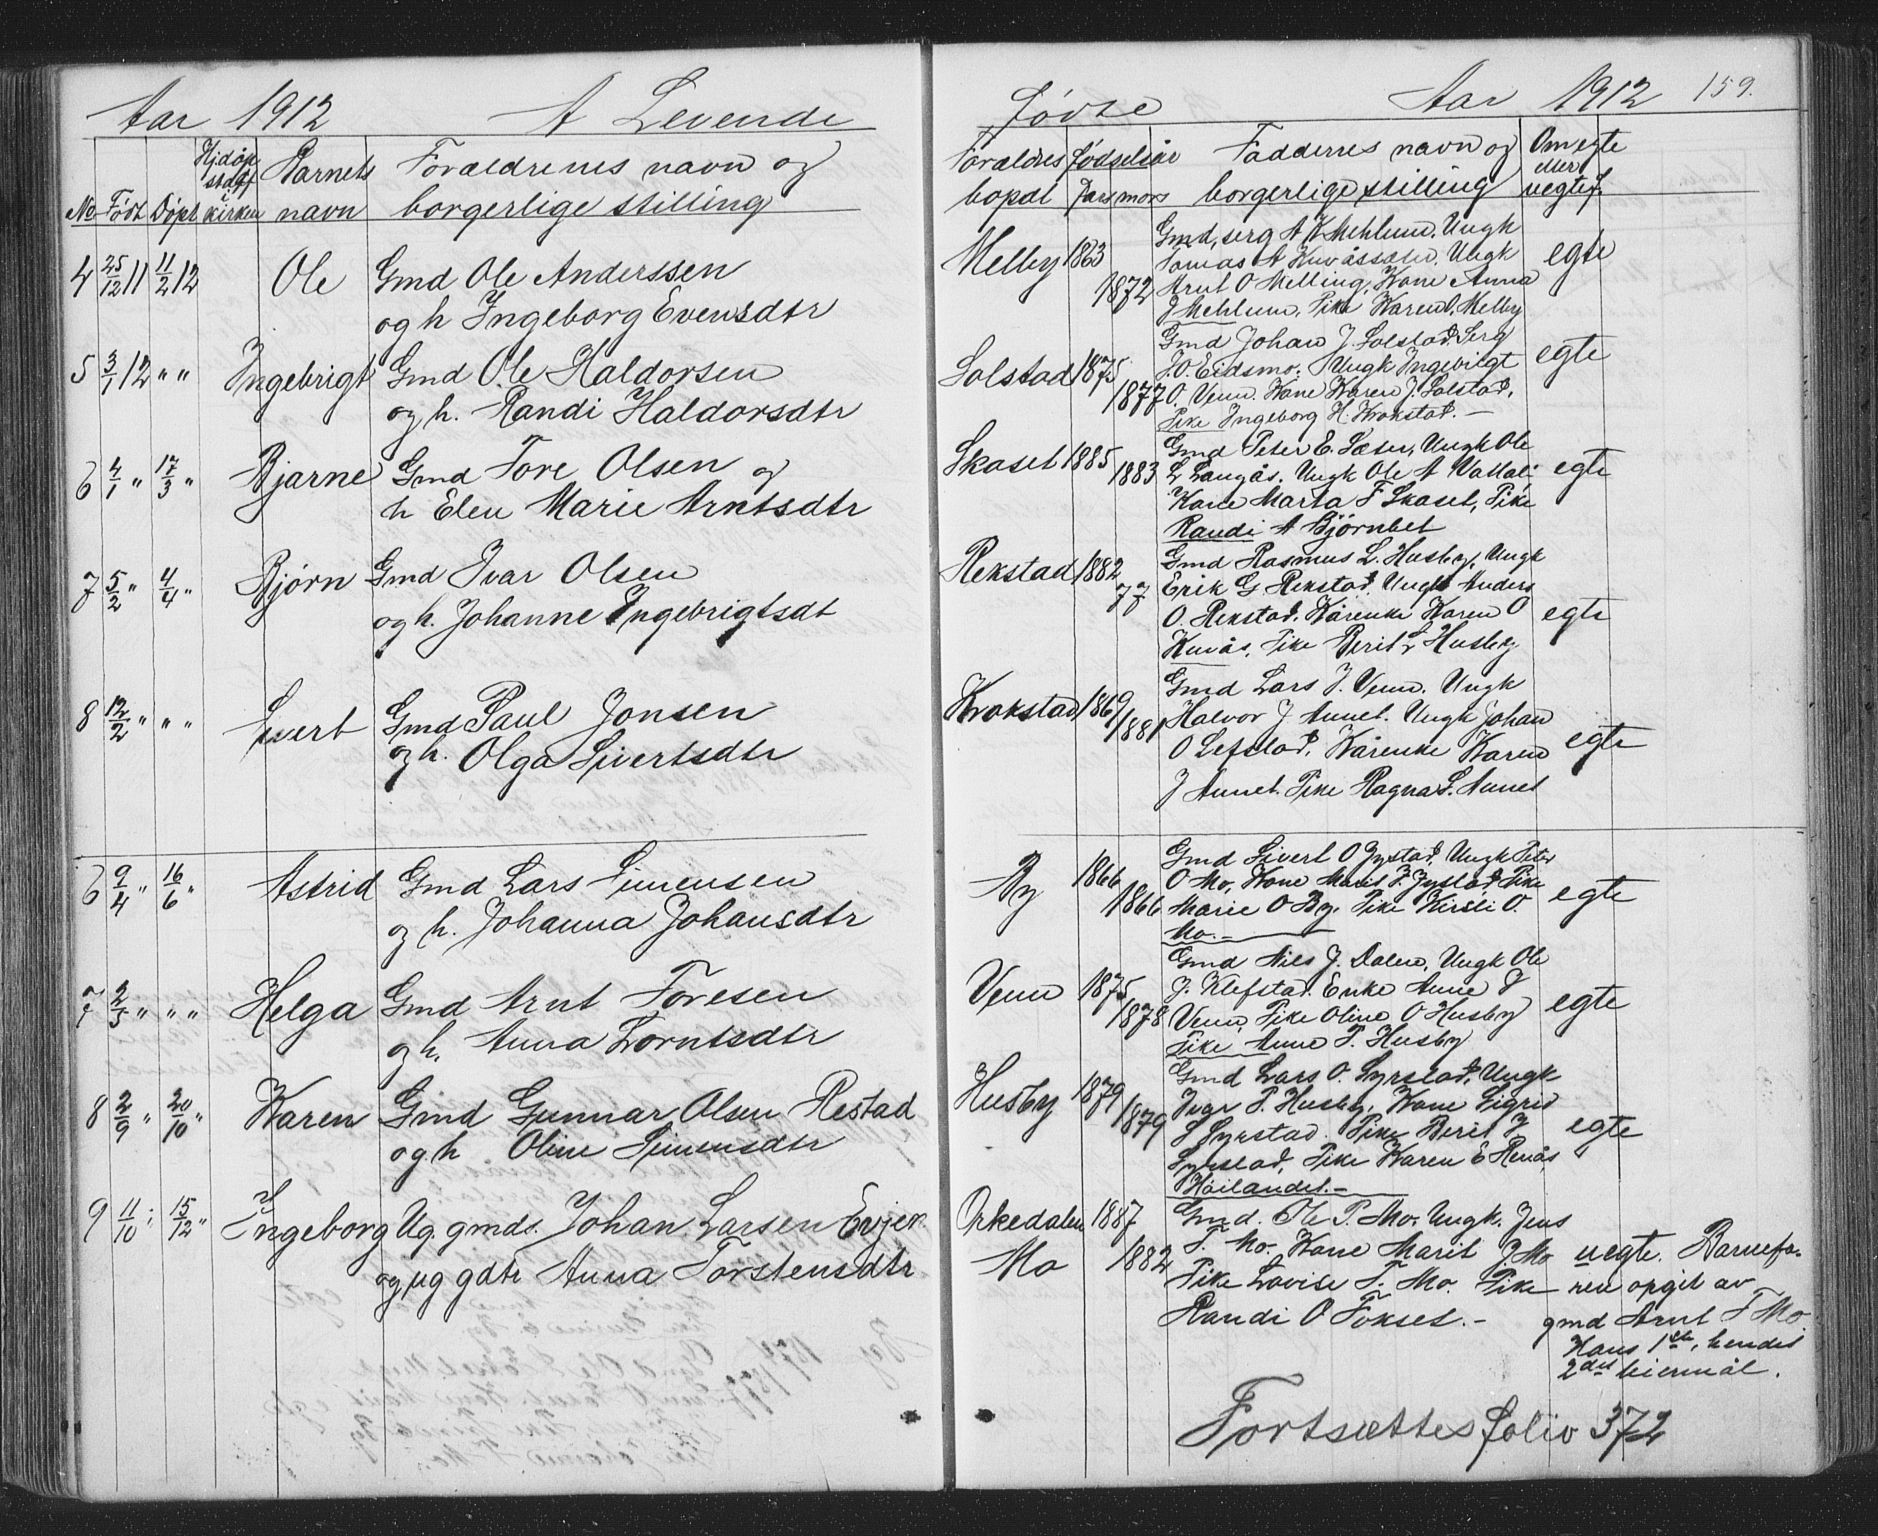 Aar 1912 A Levende
Hjdøp
stadf
i
kirken
No Født Døpt
Barnets
navn
Forældrenes navn og
borgerlige stilling
4 25/12 11 11/2 12 Ole Gmd Ole Anderssen
og h Ingeborg Evensdtr
5 3/1 12 " " Ingebrigt Gmd Ole Haldorsen
og h. Randi Haldorsdtr
6 4/1 " 17/3 " Bjarne Gmd Tore Olsen og
h Elen Marie Arntsdtr
7 5/2 " 4/4 " Bjørn Gmd Ivar Olsen
og h. Johanne Ingebrigtsdt
8 12/2 " " " Sivert Gmd Paul Jonsen
og h. Olga Sivertsdtr
6 9/4 " 16/6 " Astrid Gmd Lars Simensen
og h. Johanna Johansdtr
7 2/5 " " " Helga Gmd Arnt Toresen
og h. Anna Lorntsdtr
8 2/9 " 20/10 " Karen Gmd Gunnar Olsen Restad
og h Oline Simensdtr
9 11/10 " 15/12 " Ingeborg Ug. gmds. Johan Larsen Evjen
og ug gdtr Anna Torstensdtr
Fødte Aar 1912 159.
Forældres
bopæl
Fødselsår
Fars mors
Fadderes navn og
borgerlige stilling
Om egte
eller
uegtef.
Melby 1863 Gmd, serg A K Mehlum. Ungk
Tomas A Kuvåssæter, Ungk egte
1872 Arnt O Melling, Kone Anna
J Mehlum. Pike Karen O. Melby
Gmd Johan J. Solstad Serg
Solstad 1875 J. O Eidsmo. Ungk Ingebrigt egte
1877 O. Venn. Kone Karen J. Solstad,
Pike Ingeborg H. Krokstad. —
Skaset 1885 Gmd Peter E. Sæter, Ungk Ole
1883 L Langås. Ungk Ole A egte
Kone Marta F Skaset, Pike
Randi A Bjørnbet
Rekstad 1882 Gmd Rasmus L. Husby, Ungk
77 Erik G Rekstad. Ungk Anders
O. Rekstad. Kårenke Karen O egte
Kuvås. Pike Berit L Husby
Krokstad 1869 Gmd Lars J. Venn. Ungk
1881 Halvor J Aunet. Ungk Johan
O Sefstad, Kårenke Karen egte
J Aunet. Pike Ragna S. Aunet
By 1866 Gmd Sivert O Syrstad, Ungk Peter
O Mo, Kone Marit P. Syrstad Pike
1866 Marie O By. Pike Kirsti O. egte
Mo. —
Gmd Nils J. Dalen, Ungk Ole
Venn 1875 J. Klefstad. Enke Anne J egte
1878 Venn, Pike Oline O Husby
Pike Anne P. Husby
Husby 1879 Gmd Lars O. Syrstad, Ungk
Ivar P. Husby, Kone Sigrid
1879 S Syrstad. Pike Berit J egte
Syrstad, Pike Karen E Renås
Høilandet. —
Orkedalen 1887 Gmd. Ole P. Mo, Ungk. Jens
Mo 1882 T. Mo. Kone Marit J. Mo uegte. Barnefa-
Pike Lovise T. Mo. Pike ren opgit av
Randi O Fokset. — gmd Arnt T Mo.
Hans 1ste, hendes
2det leiermål.
Fortsættes folio 372